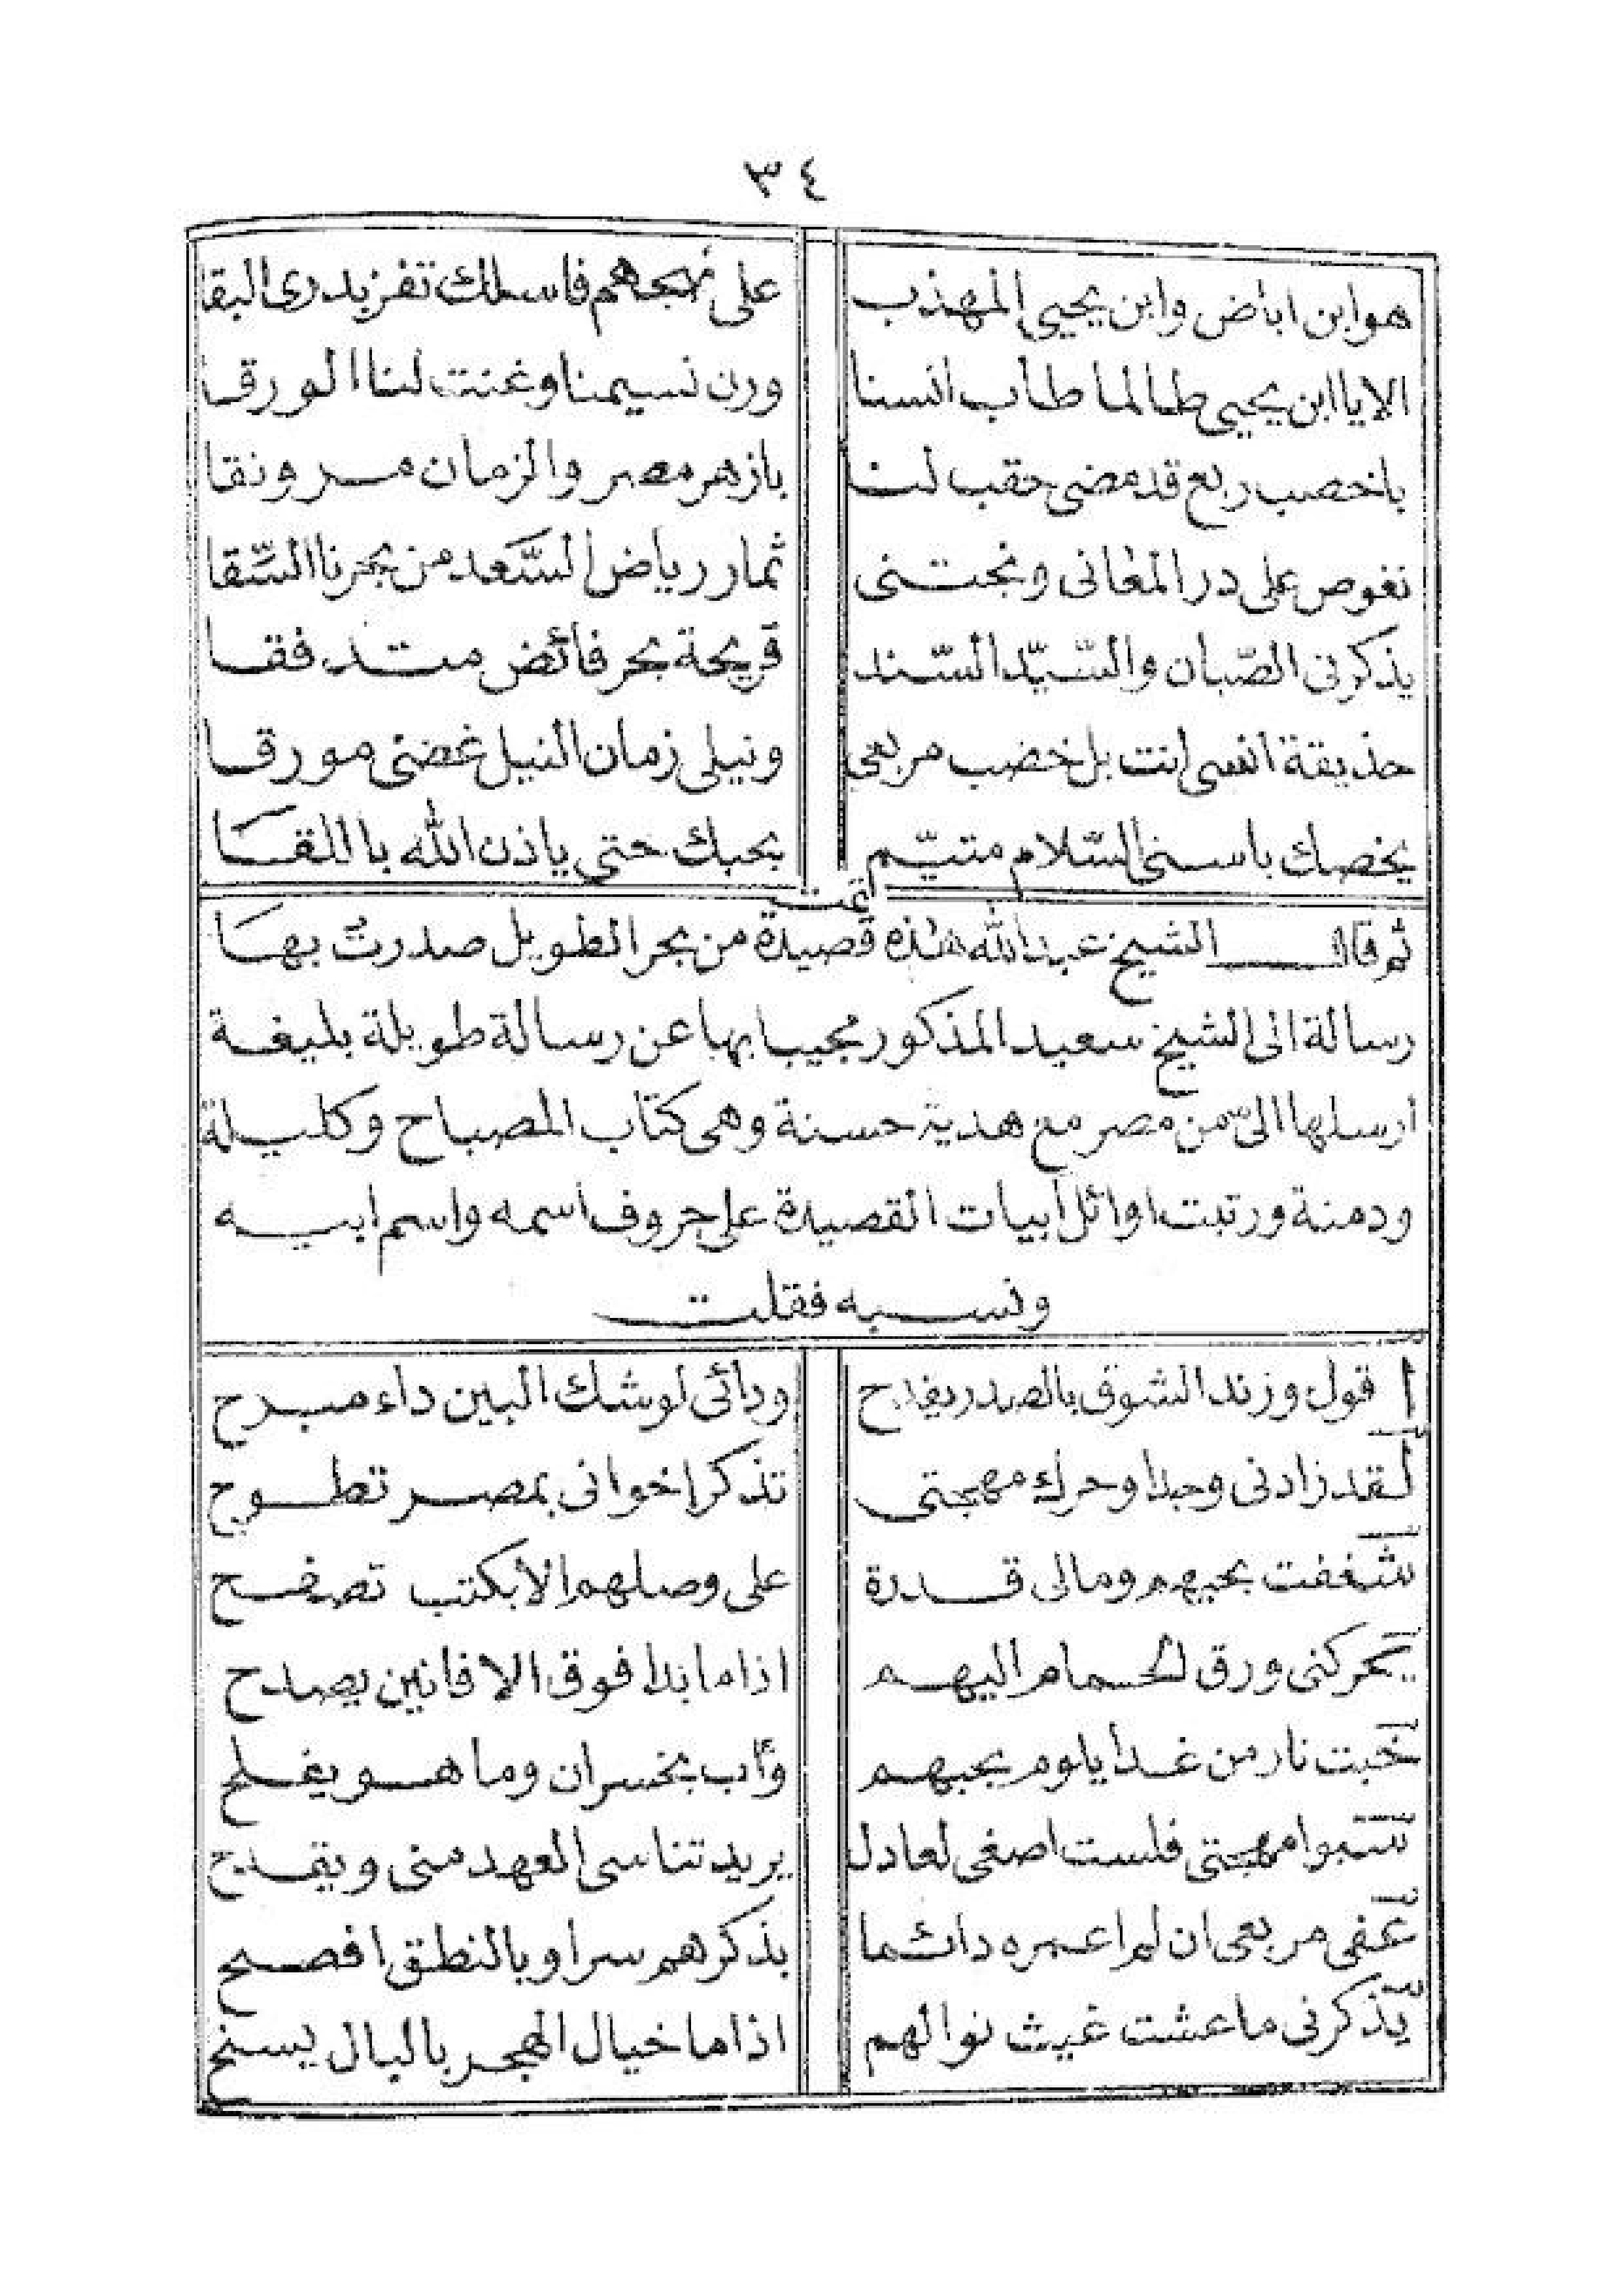 ٣٤
هو ابن اباض وابن يحيى المهذب على نهجهم فاسلك تفز بدرى البقا
الا يا ابن يحيى طالما طاب انسنا ورن نسيمنا وغنت لنا الورقا
باخصب ربع قد مضى حقب لنا بازهر مصر والزمان مرونقا
نغوص على در المعانى ونجتنى ثمار رياض السَّعد من بحرنا السِّقا
يذكرنى الصّبان والسّيّد السّند قريحة بحر فائض متدفقا
حذيقة انسى انت بل خضب مربعى ونيلى زمان النيل غضنى مورقا
يخصك باسنى السّلام متيّم بحبك حتى ياذن الله باللقَا
تمت
ثم قال الشيخ عبد الله هذه قصيدة من بحر الطويل صدرت بهَا
رسالة الى الشيخ سعيد المذكور مُجيبا بها عن رسالة طويلة بليغة
أرسلها الىّ من مصر مع هدية حسنة وهى كتاب المصباح وكليلة
ودمنة ورتبت اوائل أبيات القصيدة على حروف اسمه واسم ابيه
ونسبه فقلت
اقول وزند الشوق بالصدر يقدح ودائى لوشك البين داء مبرح
لقد زادنى وجدا وحرك مهجتى تذكر إخوانى بمصر تطوح
شغفت بحبهم ومالى قدرة على وصلهم الا بكتب تصفح
يحركنى ورق الحمام اليهم اذا ما بدا فوق الافانين يصدح
خبت نار من غدا يلوم بحبهم وأب بخسران وما هو يفلح
سبوا مهجتى فلست اصغى لعادل يريد تناسى العهد منى ويقدح
عفى مربعى ان لم اعمره دائما بذكرهم سرا وبالنطق افصح
يذكرنى ما عشت غيث نوالهم اذا ما خيال الهجر بالبال يسنح